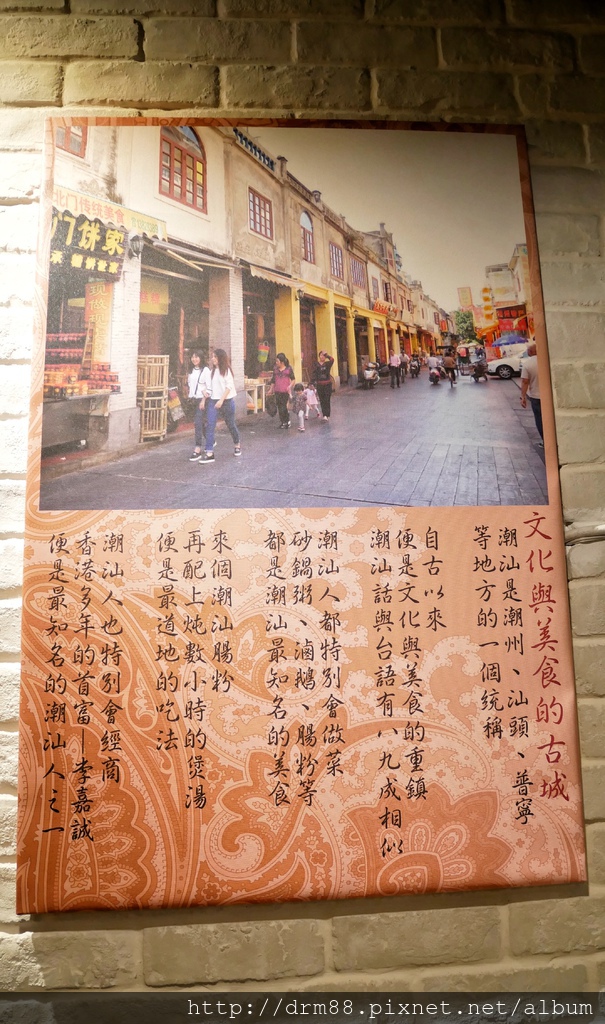 北门传统美食
门饼家
文化與美食的古城
潮汕是潮州、汕頭、普寧
等地方的一個統稱
自古以來
便是文化與美食的重鎮
潮汕話與台語有八九成相似
潮汕人都特別會做菜
砂鍋粥、滷鵝、腸粉等
都是潮汕最知名的美食
來個潮汕腸粉
再配上炖數小時的煲湯
便是最道地的吃法
潮汕人也特別會經商
香港多年的首富—李嘉誠
便是最知名的潮汕人之一
http://drm88.pixnet.net/album